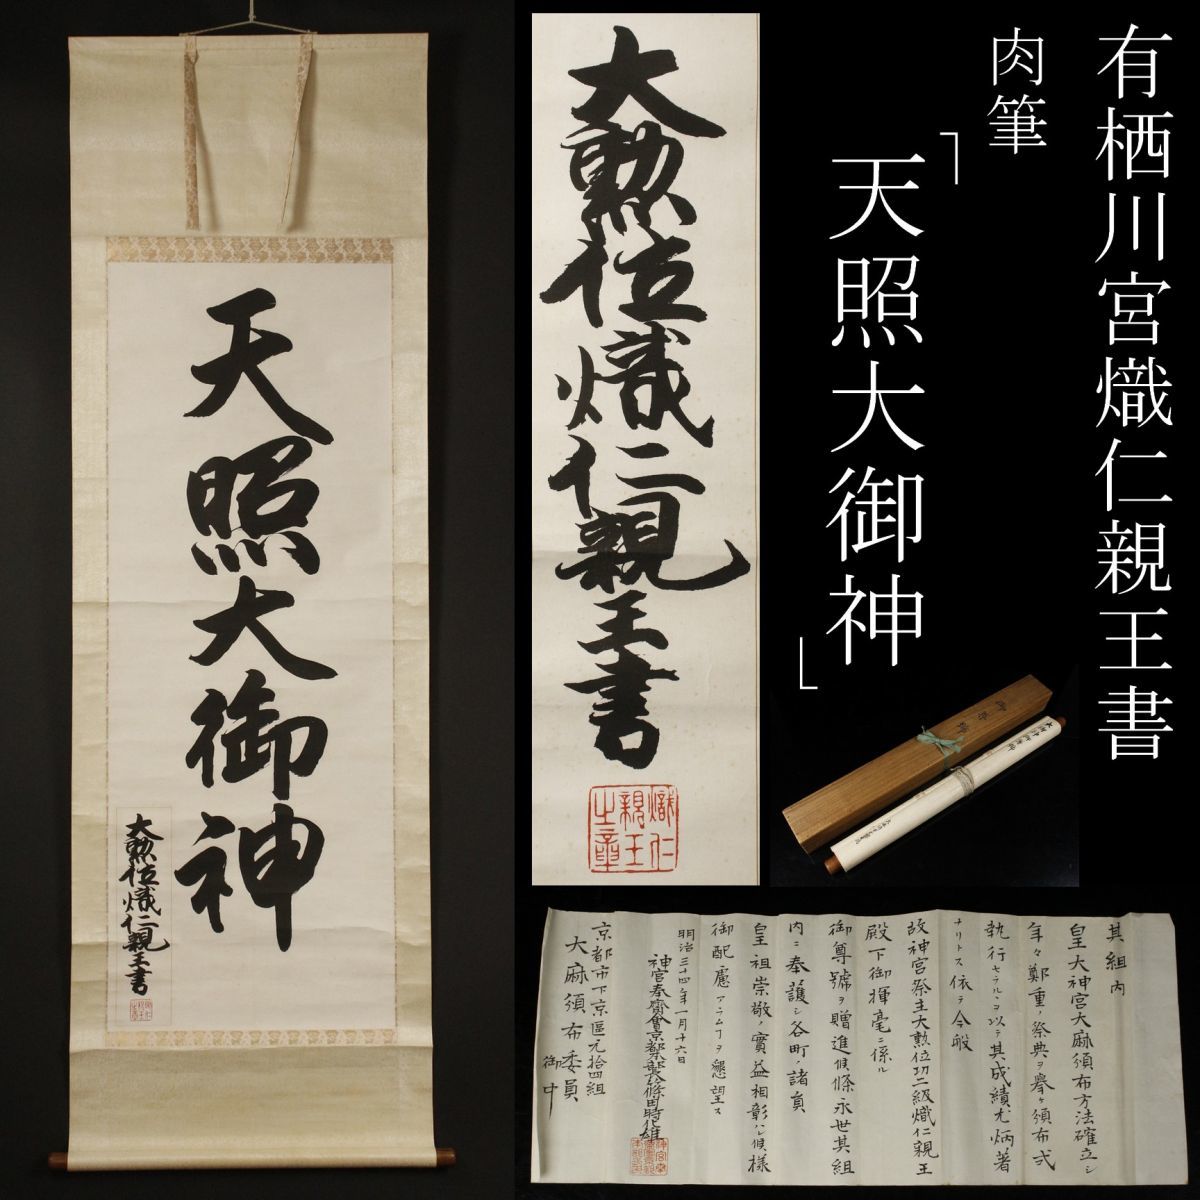 有栖川宮熾仁親王書
肉筆
「天照大御神」
天照大御神
大勲位熾仁親王書
大勲位熾仁親王書
熾仁
親王
之章
其組内
皇大神宮大麻頒布方法確立シ
年々鄭重ノ祭典ヲ挙ケ頒布式
執行セラルヽヲ以テ其成績尤炳著
ナリトス依テ今般
故神宮祭主大勲位功二級熾仁親王
殿下御揮毫ニ係ル
御尊號ヲ贈進候條永世其組
内ニ奉護シ各町ノ諸員
皇祖崇敬ノ實益相彰ハレ候様
御配慮アラムコヲ懇望ス
明治三十四年一月十六日
神宮奉齋會京都本部長篠田時化雄
京都市下京區元拾四組
大麻頒布委員
御中